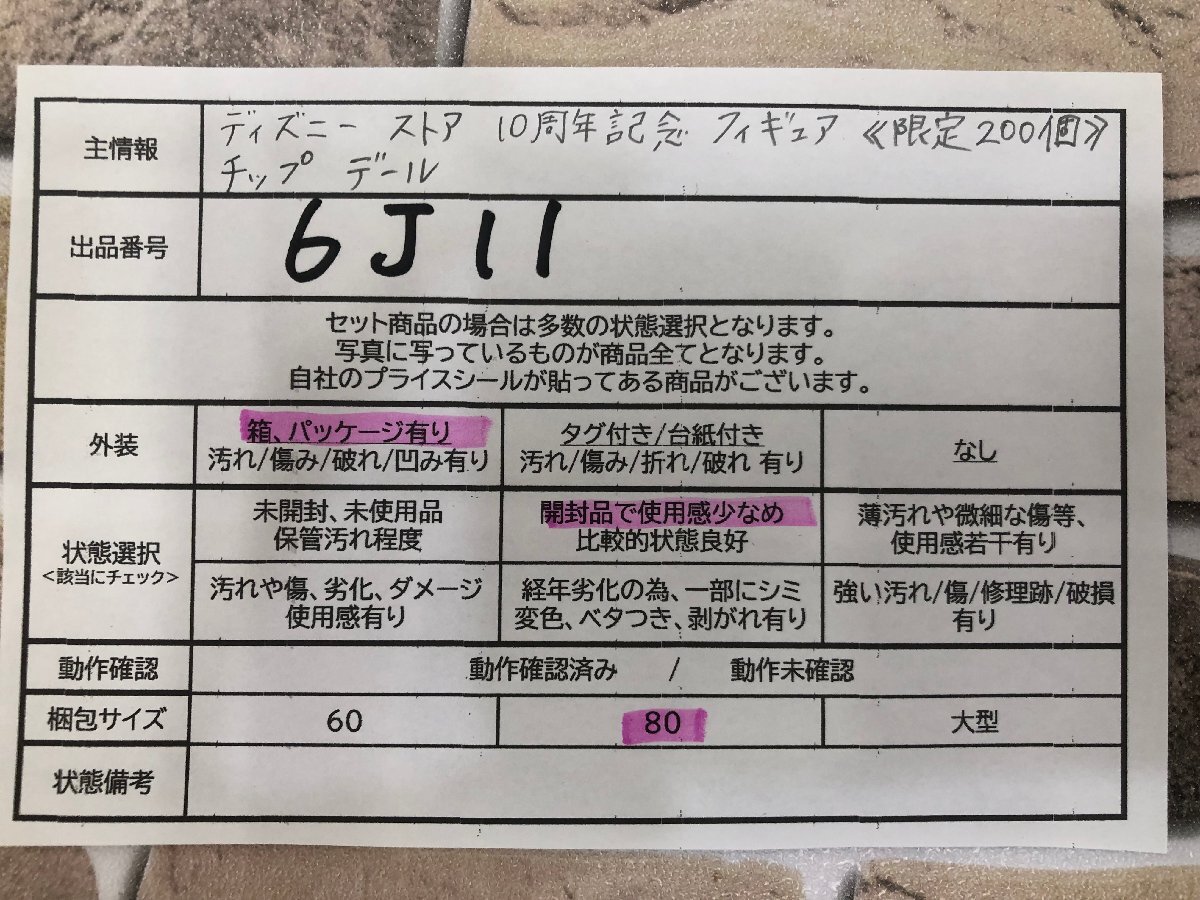 主情報
ディズニー ストア 10周年記念 フィギュア ≪限定200個≫
チップ デール
出品番号
6J11
セット商品の場合は多数の状態選択となります。
写真に写っているものが商品全てとなります。
自社のプライスシールが貼ってある商品がございます。
外装
箱、パッケージ有り
汚れ/傷み/破れ/凹み有り
タグ付き/台紙付き
汚れ/傷み/折れ/破れ 有り
なし
状態選択
<該当にチェック>
未開封、未使用品
保管汚れ程度
開封品で使用感少なめ
比較的状態良好
薄汚れや微細な傷等、
使用感若干有り
汚れや傷、劣化、ダメージ
使用感有り
経年劣化の為、一部にシミ
変色、ベタつき、剥がれ有り
強い汚れ/傷/修理跡/破損
有り
動作確認
動作確認済み / 動作未確認
梱包サイズ
60
80
大型
状態備考